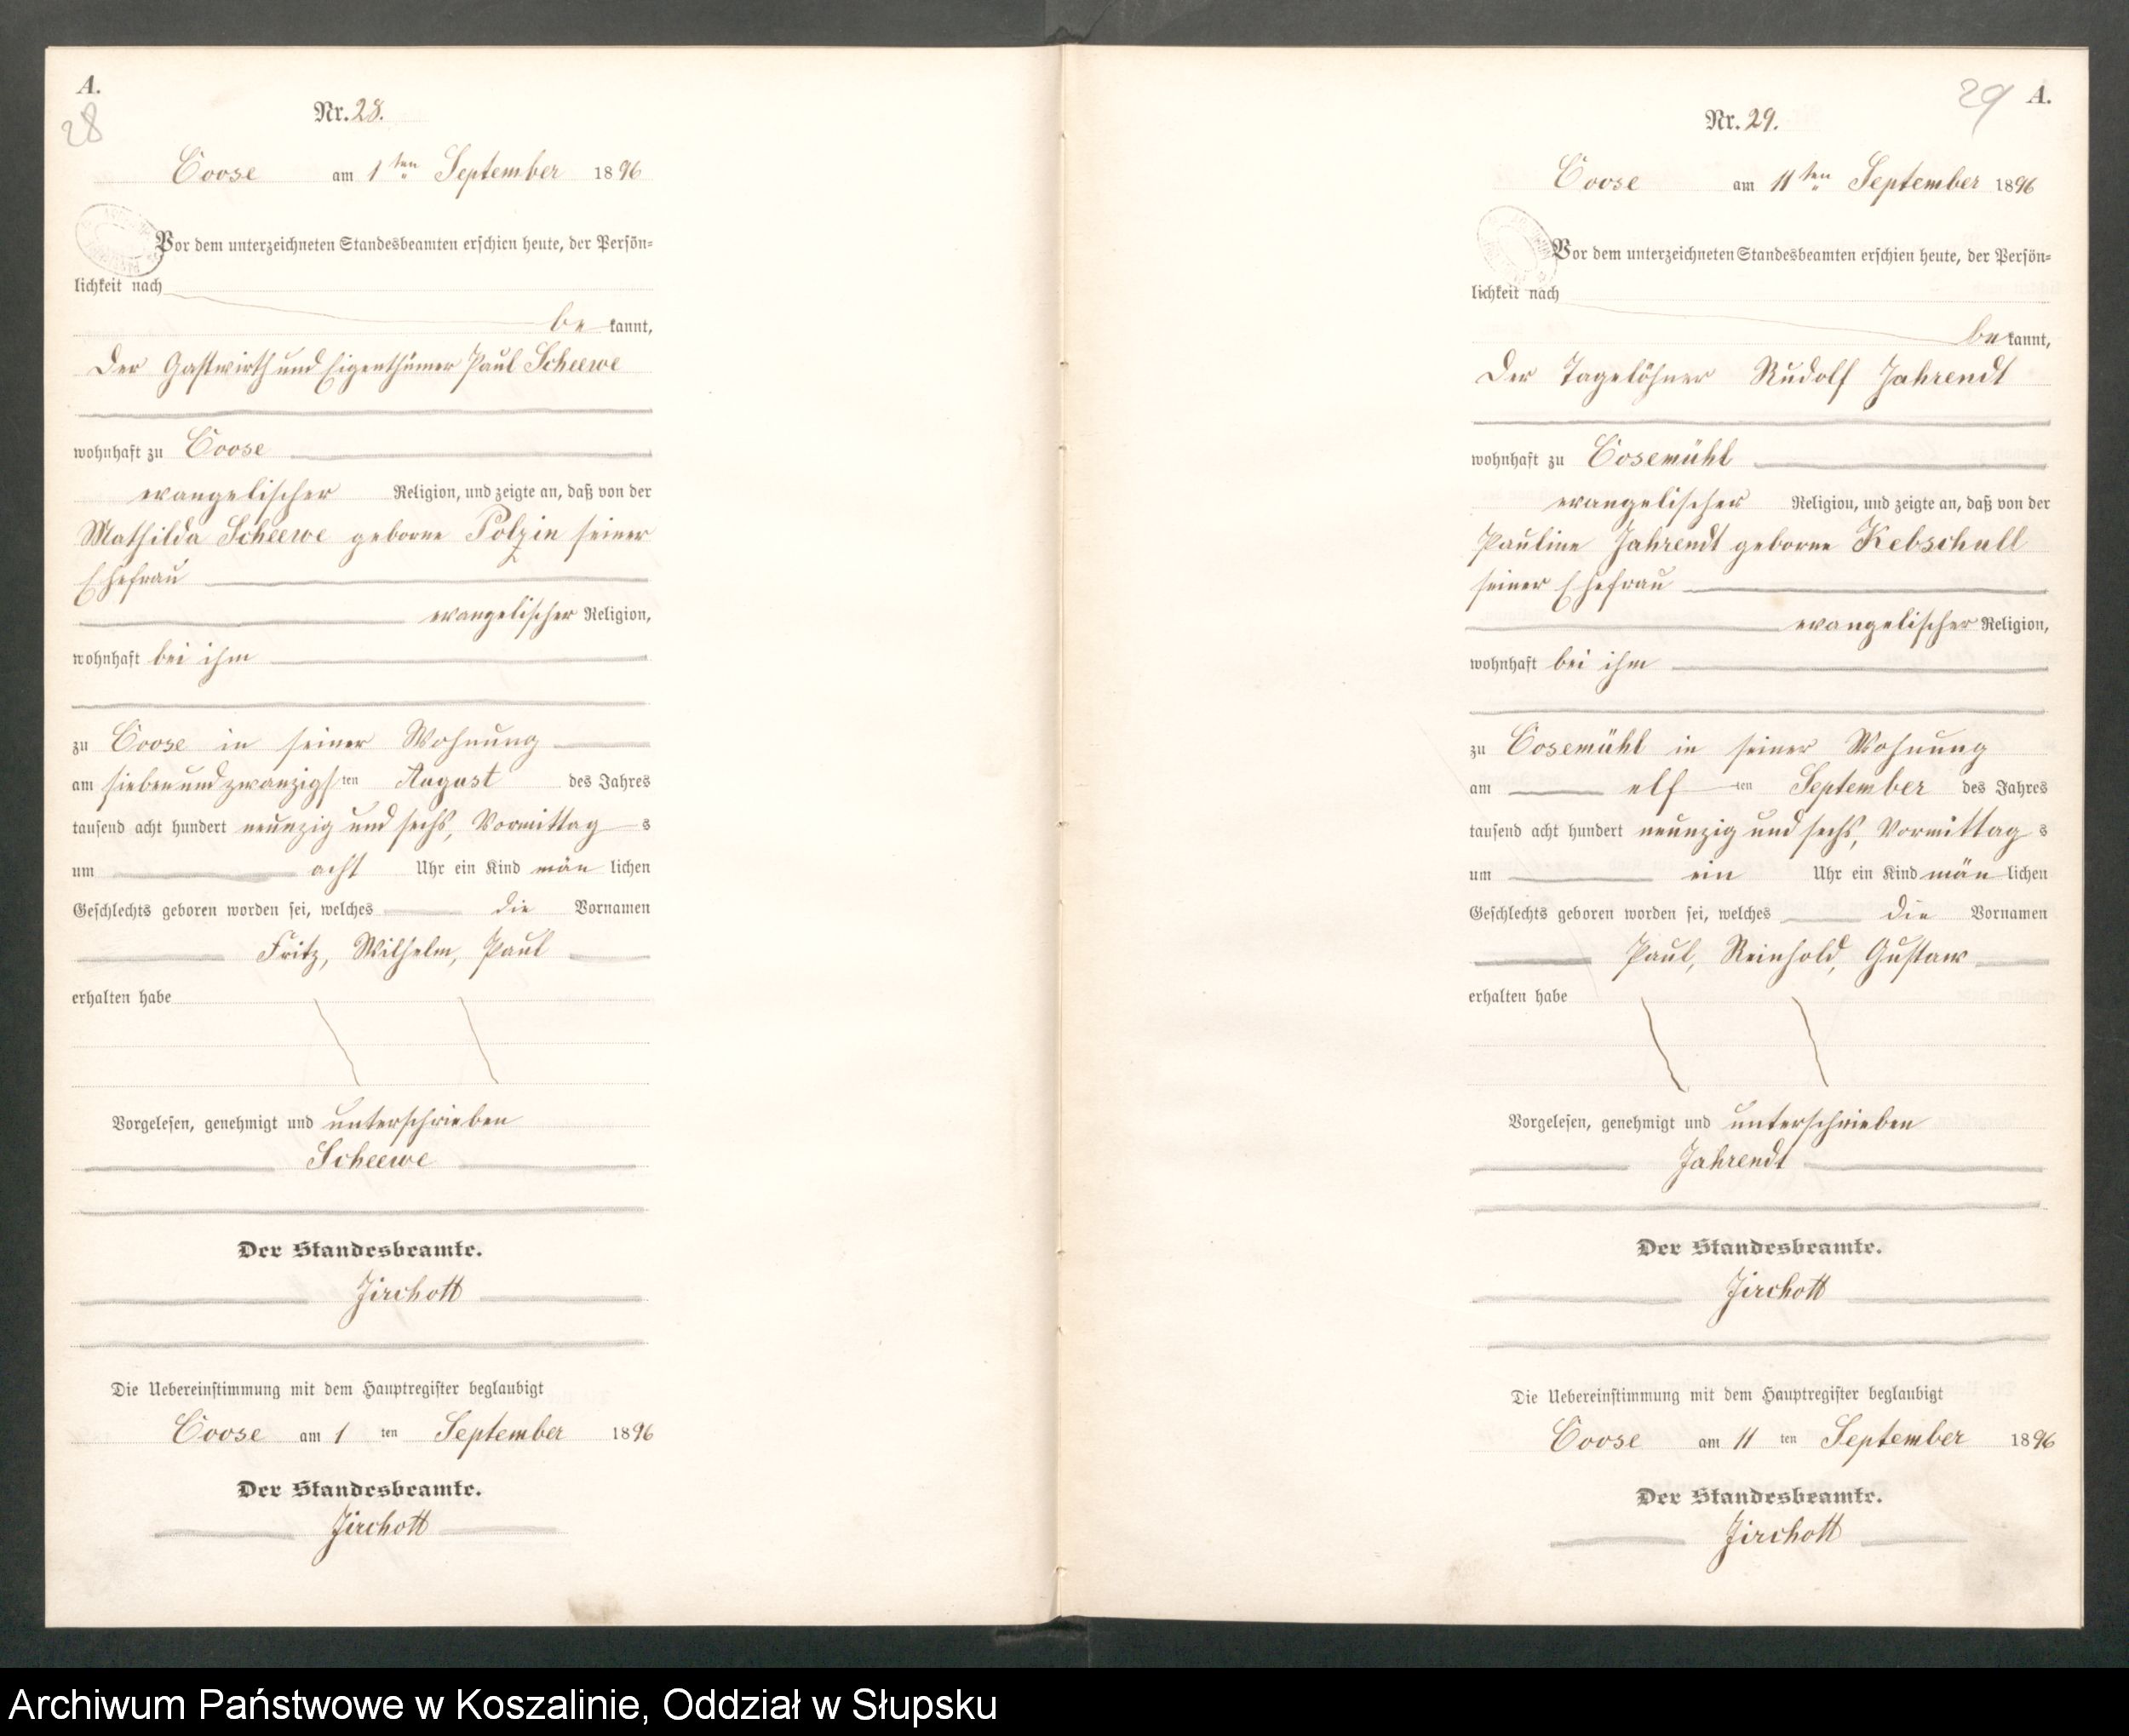 A.
28
Nr. 28.
Coose am 1ten September 1896
Vor dem unterzeichneten Standesbeamten erschien heute, der Persön-
lichkeit nach
be kannt,
der Gastwirth und Eigenthümer Paul Scheewe
wohnhaft zu Coose
evangelischer Religion, und zeigte an, daß von der
Mathilda Scheewe geborne Polzin seiner
Ehefrau
evangelischer Religion,
wohnhaft bei ihm
zu Coose in seiner Wohnung
am siebenundzwanzigsten August des Jahres
tausend acht hundert neunzig und sechs, Vormittag s
um acht Uhr ein Kind män lichen
Geschlechts geboren worden sei, welches die Vornamen
Fritz, Wilhelm, Paul
erhalten habe
Vorgelesen, genehmigt und unterschrieben
Scheewe
Der Standesbeamte.
Jirchott
Die Uebereinstimmung mit dem Hauptregister beglaubigt
Coose am 1 ten September 1896
Der Standesbeamte.
Jirchott
29 A.
Nr. 29.
Coose am 11ten September 1896
Vor dem unterzeichneten Standesbeamten erschien heute, der Persön-
lichkeit nach
be kannt,
der Tagelöhner Rudolf Jahrendt
wohnhaft zu Cosemühl
evangelischer Religion, und zeigte an, daß von der
Pauline Jahrendt geborne Kebschull
seiner Ehefrau
evangelischer Religion,
wohnhaft bei ihm
zu Cosemühl in seiner Wohnung
am elf ten September des Jahres
tausend acht hundert neunzig und sechs, Vormittag s
um ein Uhr ein Kind män lichen
Geschlechts geboren worden sei, welches die Vornamen
Paul, Reinhold, Gustaw
erhalten habe
Vorgelesen, genehmigt und unterschrieben
Jahrendt
Der Standesbeamte.
Jirchott
Die Uebereinstimmung mit dem Hauptregister beglaubigt
Coose am 11 ten September 1896
Der Standesbeamte.
Jirchott
Archiwum Państwowe w Koszalinie, Oddział w Słupsku